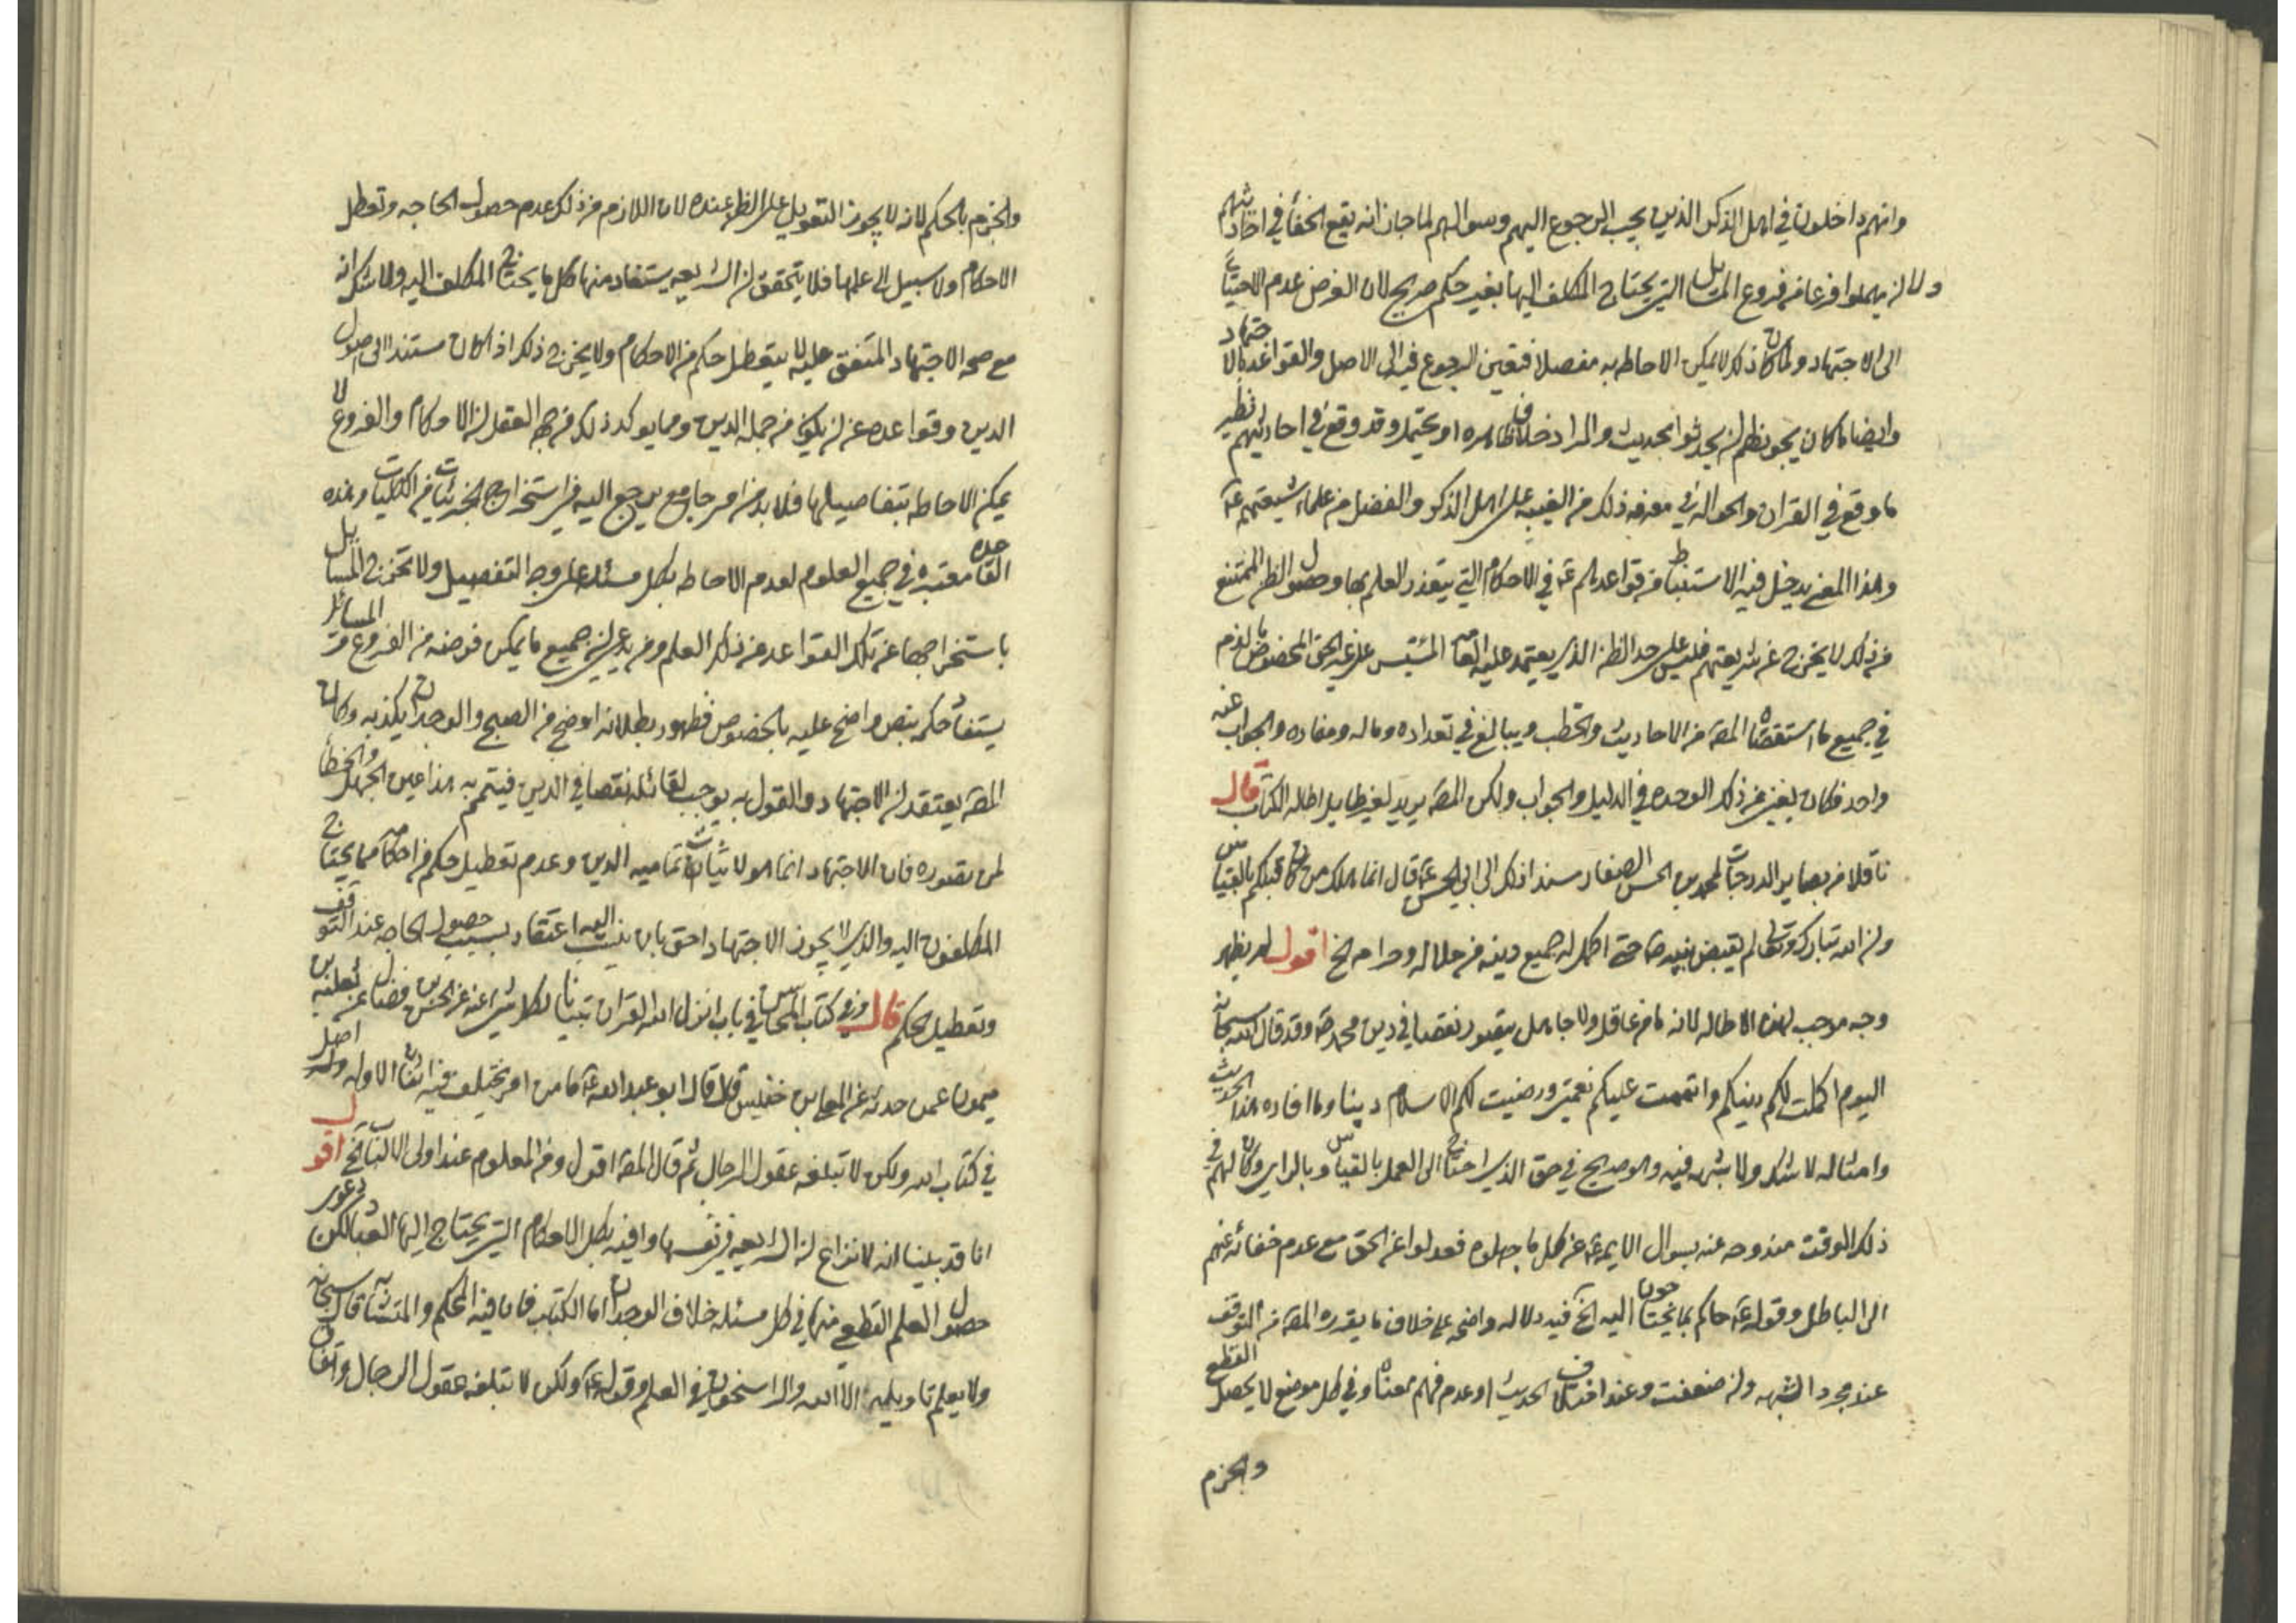 وانهم داخلون في اهل الذكر الذين يجب الرجوع اليهم وسوالهم لما جاز انه يقع الخفأ في احاديثهم
ولا ان يهملوا فرعا من فروع المسايل التي يحتاج المكلف اليها بغير حكم صريح لان الفرض عدم الاحتياج
الى الاجتهاد ولما كان ذلك لا يمكن الاحاطه به مفصلا فتعين الرجوع فيه الى الاصل والقواعد بالاجتهاد
وايضا لما كان يجوز لهم ان يحدثوا بحديث والمراد خلاف ظاهره او يحتمله وقد وقع في احاديثهم نظير
ما وقع في القران والحواله في معرفه ذلك من الغيبه على اهل الذكر والفضل من علماء شيعتهم عم
وهذا المعنى يدخل فيه الاستنباط من قواعدهم عم في الاحكام التي يتعذر العلم بها وحصول الظن الممتنع
من ذلك لا يخرج عن شريعتهم فليس على حد الظن الذي يعتمد عليه العامه المئتس على غير الحق المخصوص لغرم
في جميع ما استقصاه المصه من الاحاديث والخطب ويبالغ في تعداده وماله ومفاده والجواب عنه
واحد فكان يغني عن ذلك الوحده في الدليل والجواب ولكن المصه يريد لغير طايل اطاله الكتاب قال
ناقلا من بصاير الدرجات لمحمد بن الحسن الصفار سندا ذكر الى ابي الحسن عم قال انما هلك من كان قبلكم بالقياس
وان الله تبارك وتعالى لم يقبض نبيه ص حتى اكمل له جميع دينه من حلاله وحرامه الخ اقول لم يظهر
وجه موجب لهذه الاطاله لانه ما من عاقل ولا جاهل يتصور نقصا في دين محمد ص وقد قال الله سبحانه
اليوم اكملت لكم دينكم واتممت عليكم نعمتي ورضيت لكم الاسلام دينا وما افاده هذا الحديث
وامثاله لا شك ولا شبهه فيه وهو صريح في حق الذي احتاج الى العمل بالقياس وبالراي وكان لهم في
ذلك الوقت مندوحه عنه بسوال الايمه عم عن كل ما جهلوه فعدلوا عن الحق مع عدم خفائه عنهم
الى الباطل وقوله عم حاكم بما يحتاجون اليه الخ فيه دلاله واضحه على خلاف ما يقدره المصه من التوقف
عند مجرد الشبهه وان ضعفت وعند اختلاف الحديث او عدم فهم معناه وفي كل موضع لا يحصل القطع
والجزم
والجزم بالحكم لانه لا يجوز التعويل على الظن عنده لان اللازم من ذلك عدم حصول الحاجه وتعطل
الاحكام ولا سبيل الى علمها فلا يتحقق ان الشريعه يستفاد منها كل ما يحتاج المكلف اليه ولا شك انه
مع صحه الاجتهاد المتفق عليه لا يتعطل حكم من الاحكام ولا يخرج ذلك اذا كان مستندا الى اصول
الدين وقواعده عن ان يكون من جمله الدين ومما يوكد ذلك من جهه العقل ان الاحكام والفروع لا
يمكن الاحاطه بتفاصيلها فلا بد من امر جامع يرجع اليه في استخراج الجزئيات من الكليات وهذه
القاعده معتبره في جميع العلوم لعدم الاحاطه بكل مسئله على وجه التفصيل ولا تخرج المسايل
باستخراجها عن تلك القواعد عن ذلك العلم ومن يدعي ان جميع ما يمكن فرضه من الفروع من المسائل
يستفاد حكمه بنص واضح عليه بالخصوص فظهور بطلانه اوضح من الصبح والوجدان يكذبه وكان
المصه يعتقد ان الاجتهاد والقول به يوجب لقائله نقصا في الدين فيتمم به هذا عين الجهل والخطأ
لمن تصوره فان الاجتهاد انما هو لاثبات تماميه الدين وعدم تعطيل حكم من احكامه مما يحتاج
المكلفون اليه والذي لا يجوز الاجتهاد احق بان ينسب اليه اعتقاد بسبب حصول الحاجه عند التوقف
وتعطيل الحكم قال وفي كتاب المحاسن في باب انزل الله القران تبيانا لكل شي عنه عن الحسن بن فضال عن ثعلبه بن
ميمون عمن حدثه عن المعلى بن خنيس قال قال ابو عبد الله عم ما من امر يختلف فيه اثنان الا وله اصل
في كتاب الله ولكن لا تبلغه عقول الرجال ثم قال المصه اقول ومن المعلوم عند اولى الالباب الخ اقول
انا قد بينا انه لا نزاع ان الشريعه في نفسها وافيه بكل الاحكام التي يحتاج اليها العباد لكن دعوى
حصول العلم القطعي منها في كل مسئله خلاف الوجدان اما الكتاب فان فيه المحكم والمتشابه قال سبحانه
ولا يعلم تاويله الا الله والراسخون في العلم وقوله عم ولكن لا تبلغه عقول الرجال واتفاق